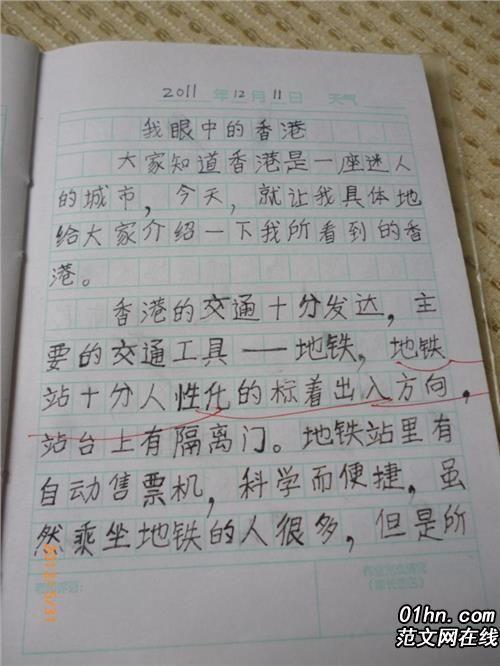 2011年12月11日 天气
我眼中的香港
大家知道香港是一座迷人
的城市，今天，就让我具体地
给大家介绍一下我所看到的香
港。
香港的交通十分发达，主
要的交通工具——地铁，地铁
站十分人性化的标着出入方向，
站台上有隔离门。地铁站里有
自动售票机，科学而便捷，虽
然乘坐地铁的人很多，但是所
01hn.com
范文网在线